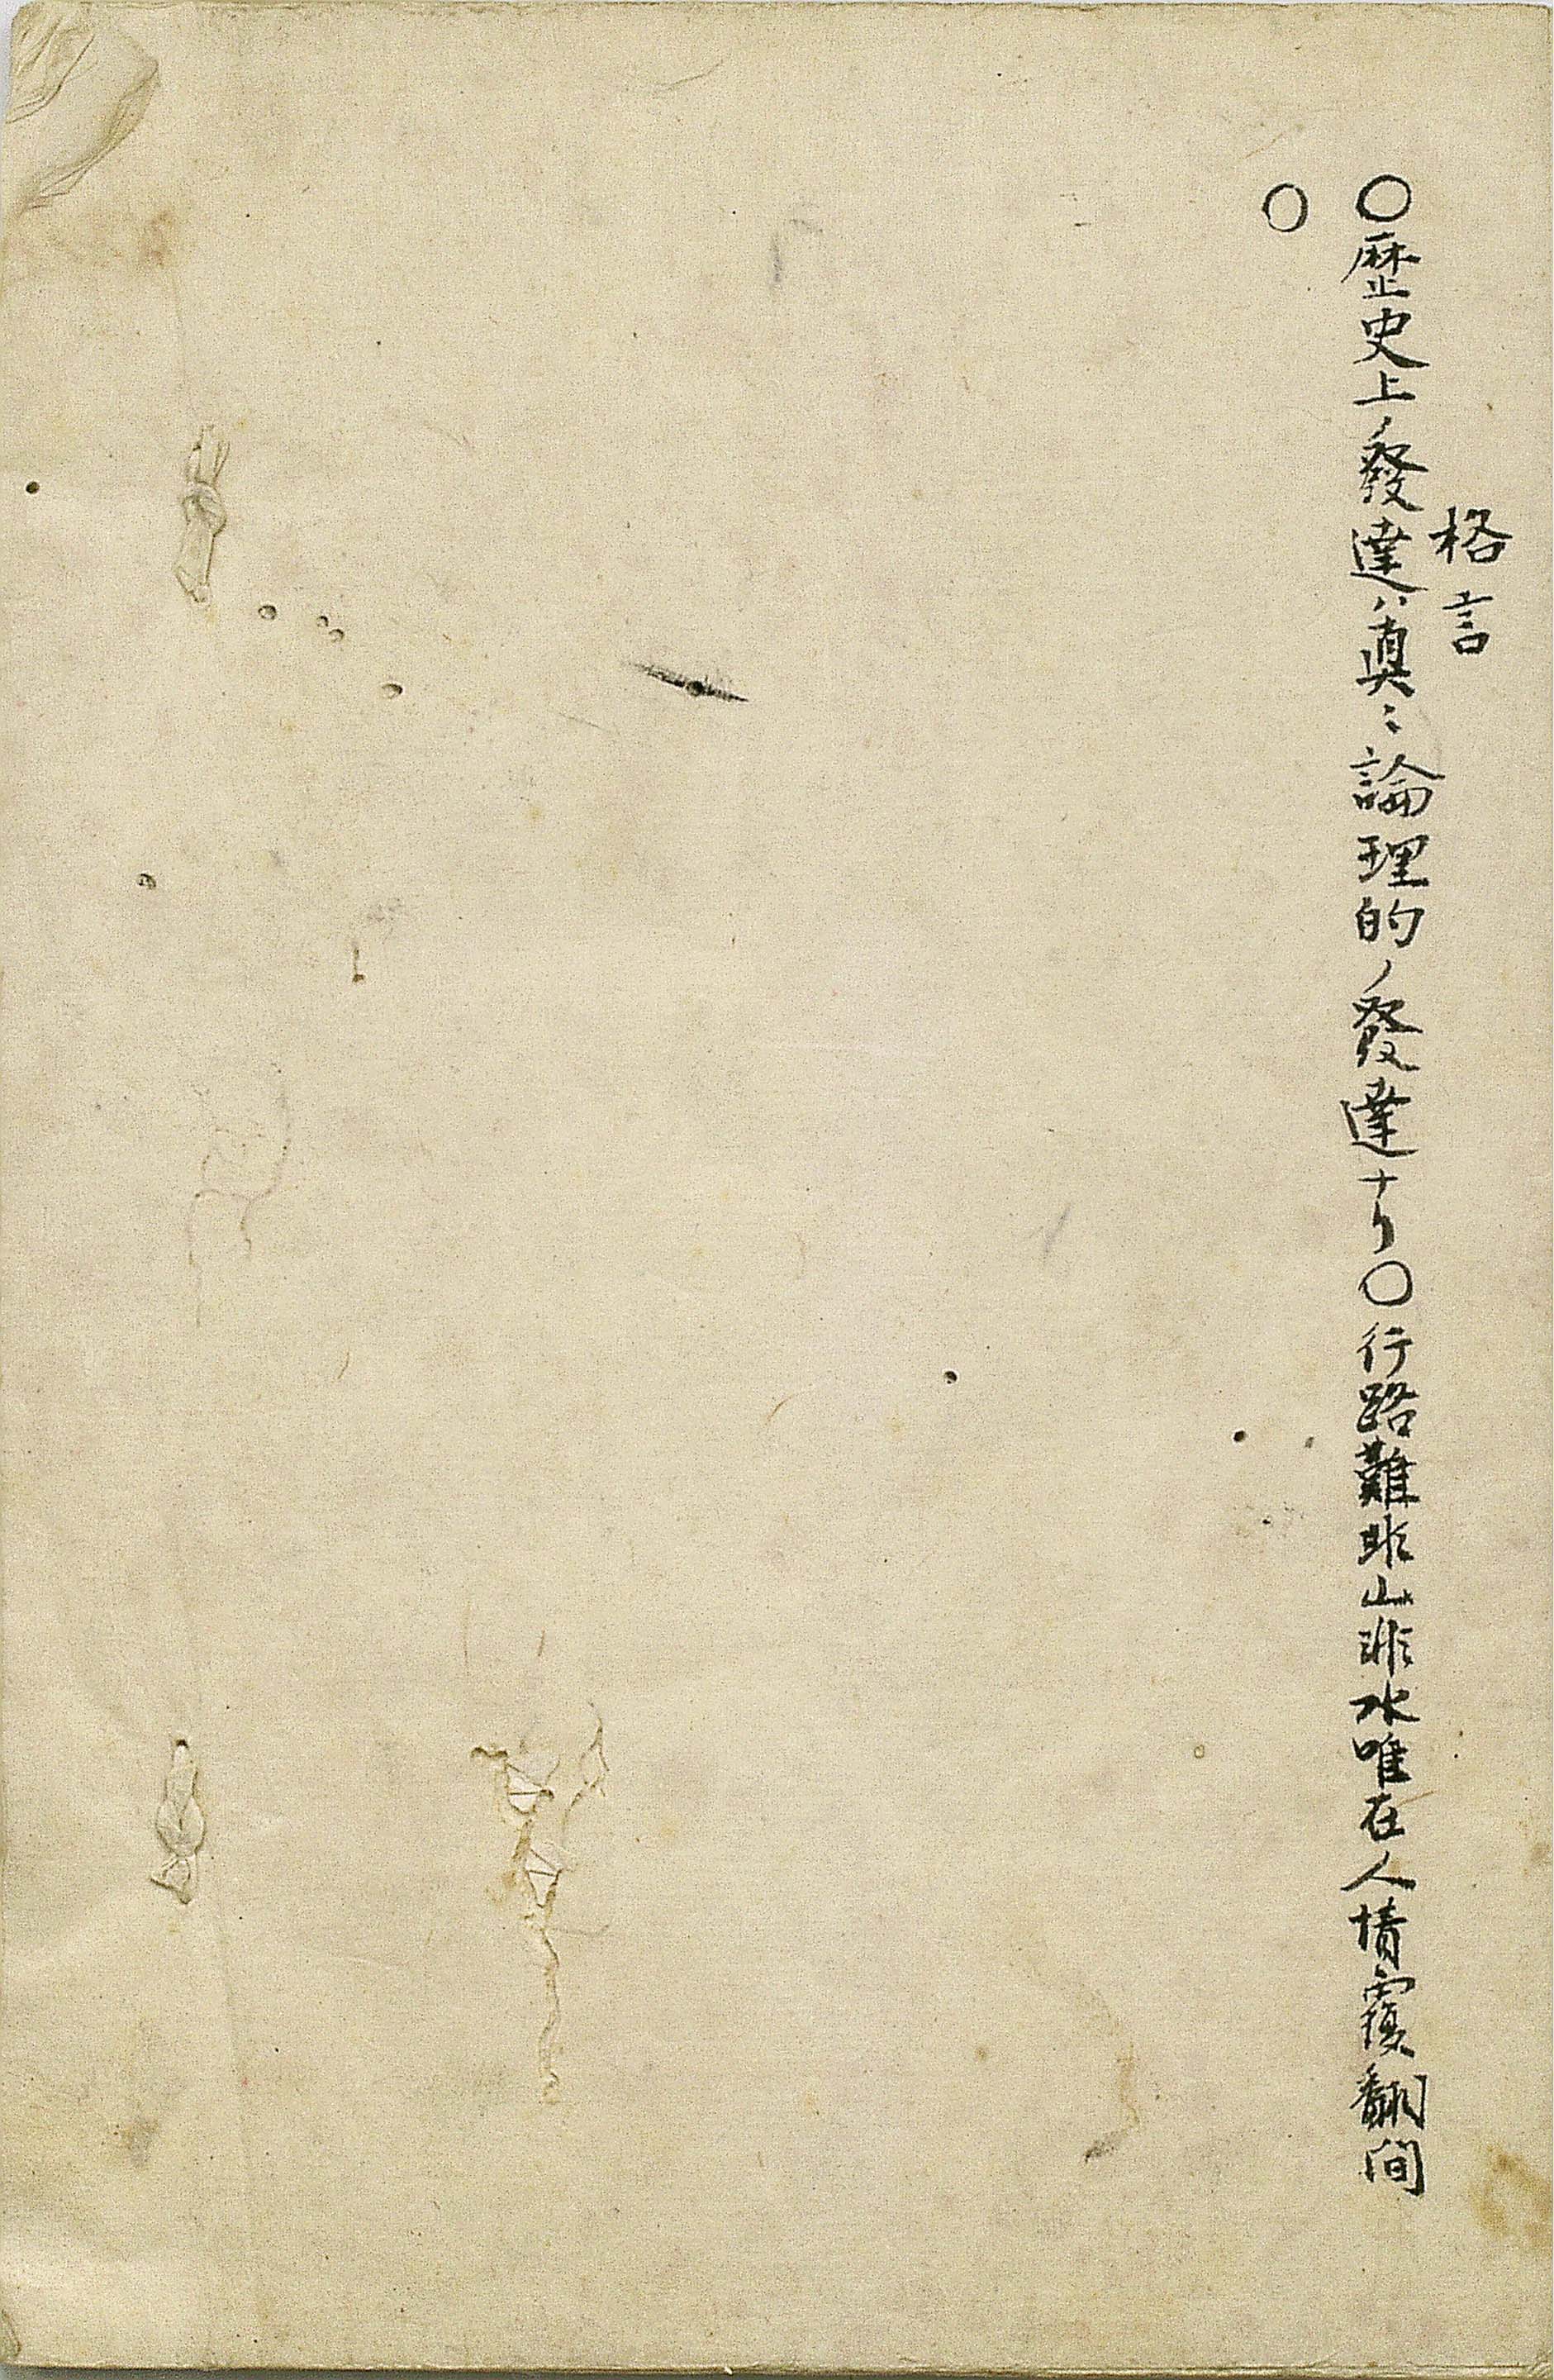 格言
〇歴史上ノ發達ハ眞ニ論理的ノ發達ナリ〇行路難非山非水唯在人情覆翻間
〇